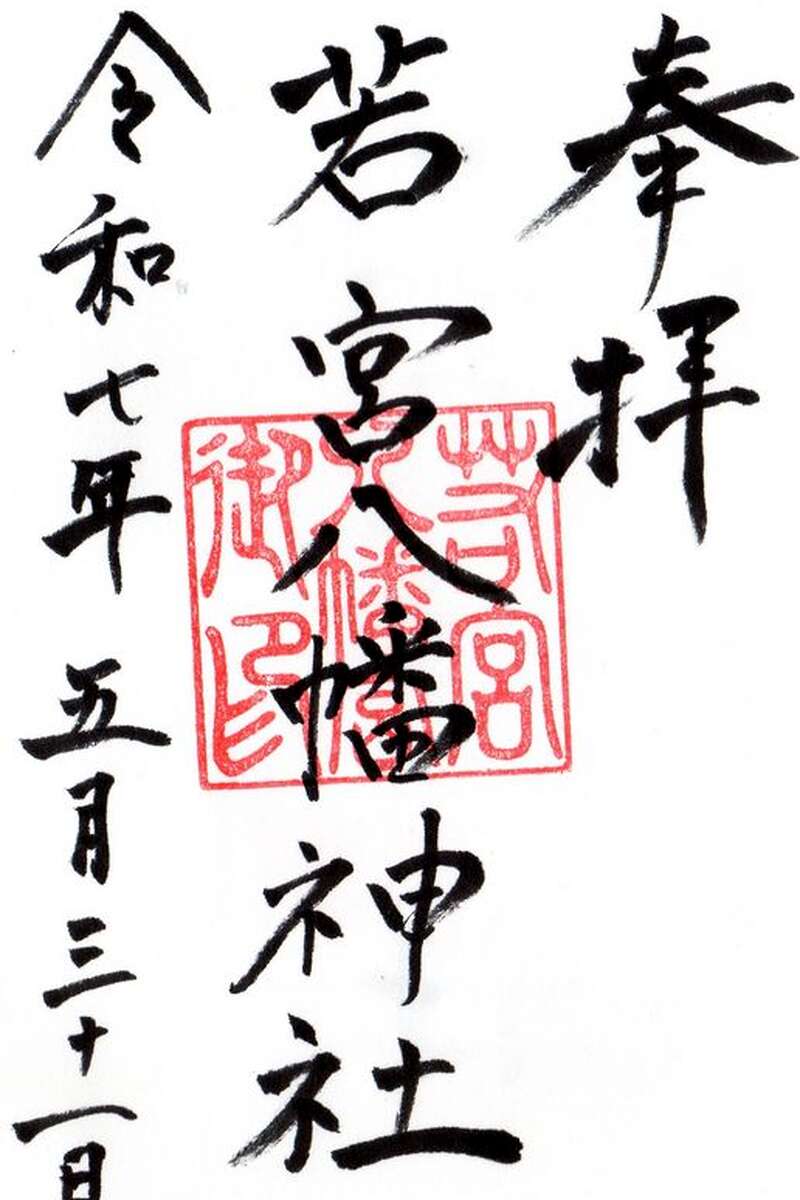 奉拝
若宮八幡神社
令和七年 五月三十一日
若宮
八幡
御印